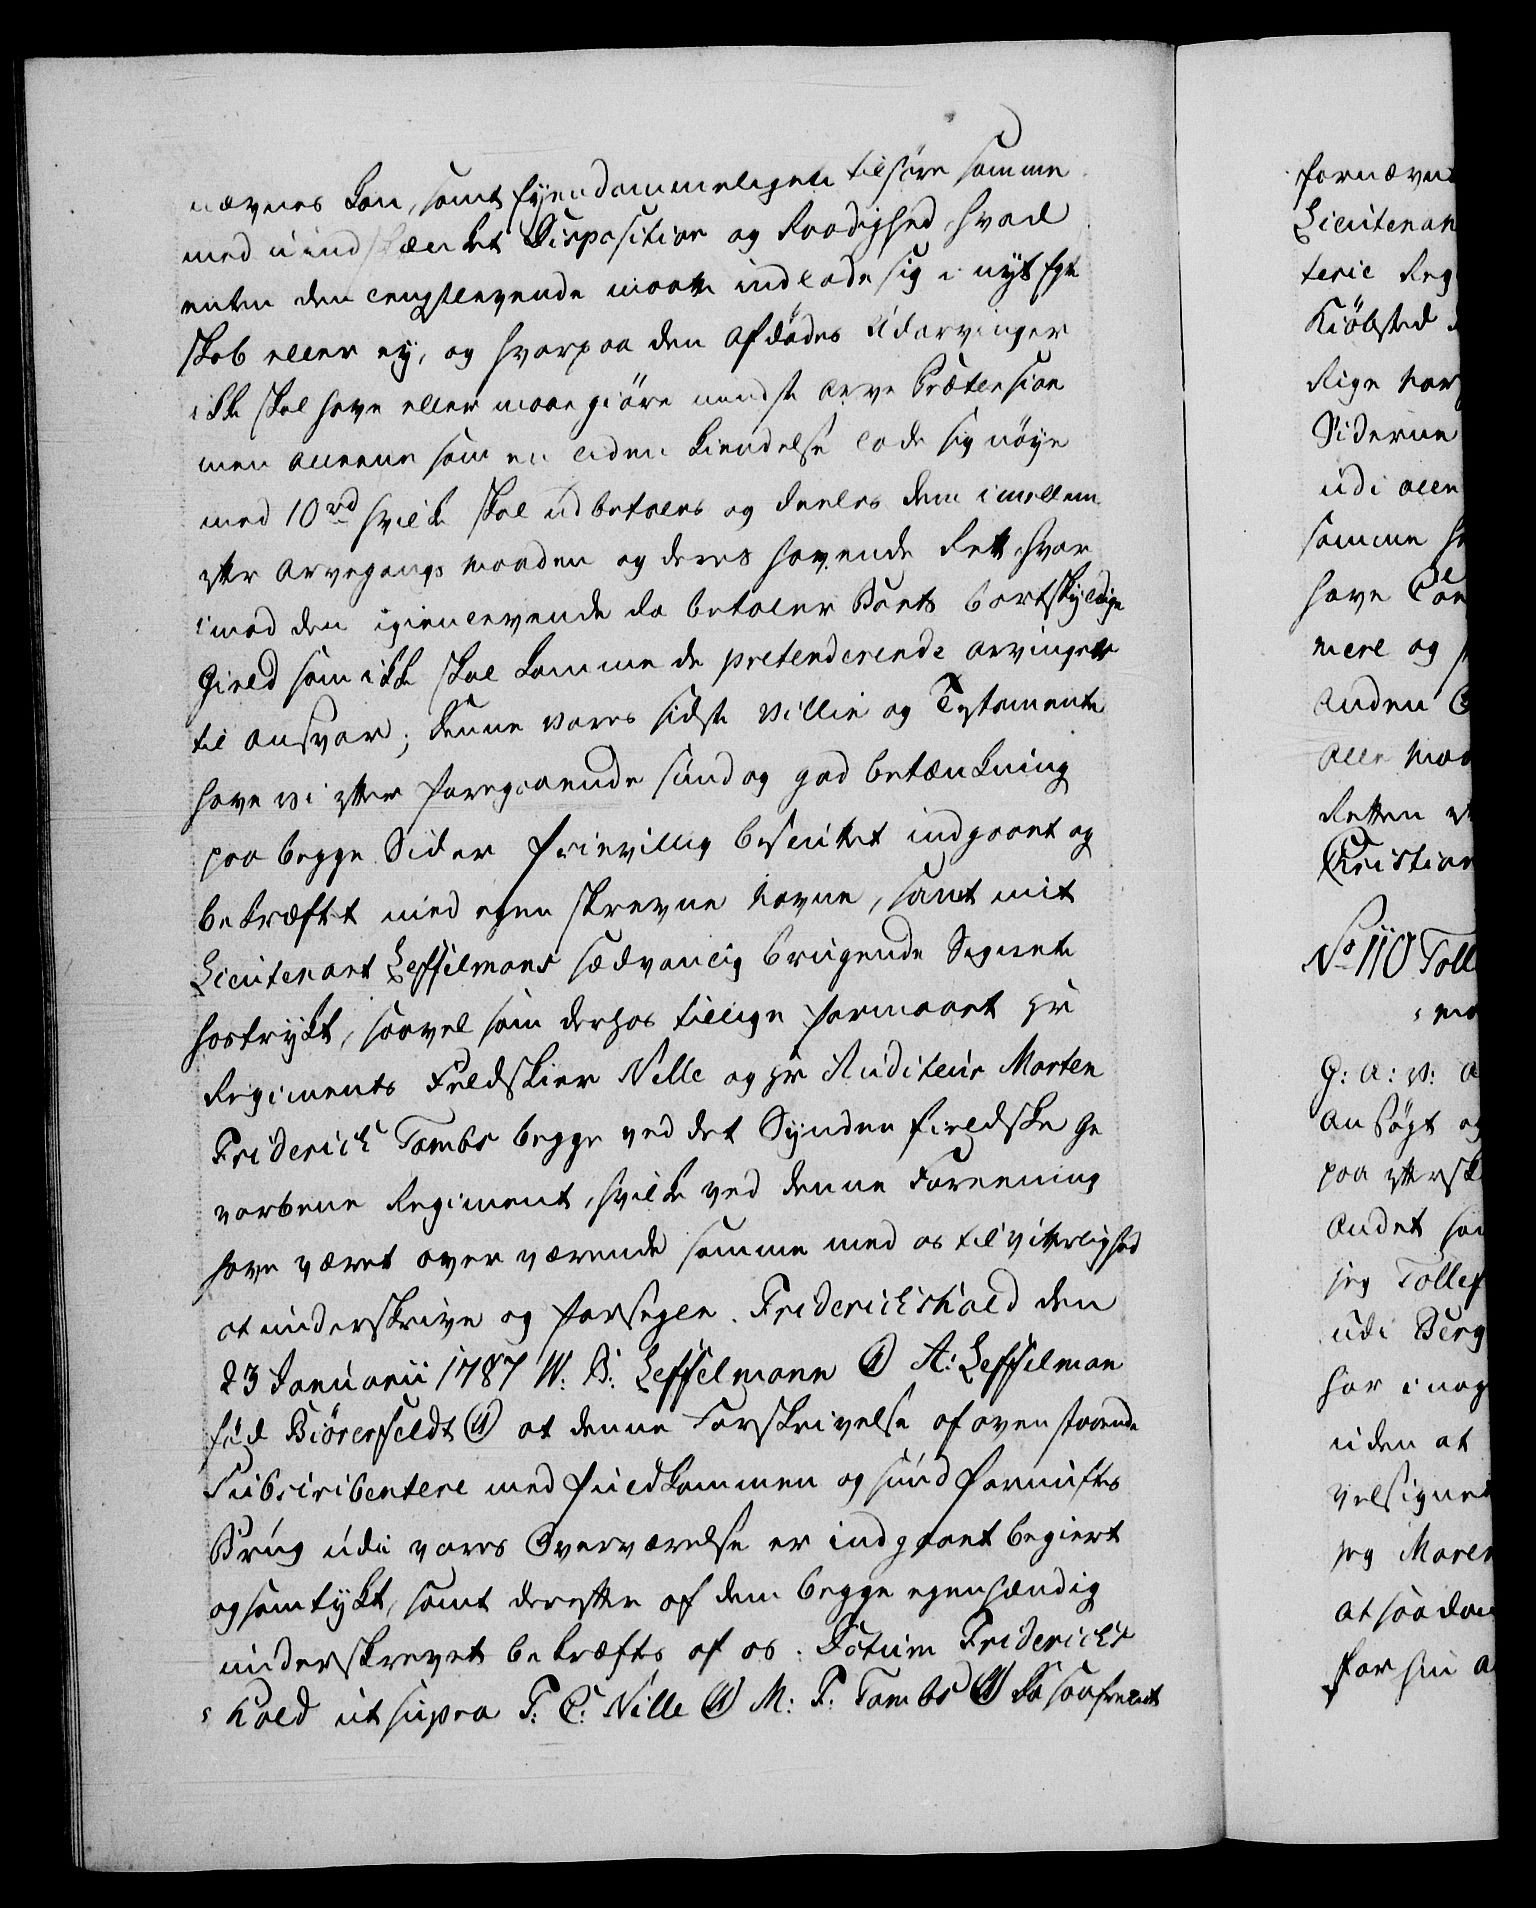 nævnes kan, samt Eyendommeligen tilhøre samme
med uindskrænket Disposition og Raadighed hvad
enten den længstlevende maatte indlade sig i nyt Egte
skab eller ey, og hvorpaa den afdødes Udarvinger
ikke skal have eller maae giøre mindste Arve Prætension
men alleene som en liden kiendelse lade sig nøye
med 10 rd hvilke skal udbetales og deeles dem imellem
efter Arvegangs maaden og deres havende Rett, hvor
imod den igienlevende da betaler Boets bortskyldige
Gield som ikke skal komme de pretenderende arvinger
til ansvar; denne vores sidste Villie og Testamente
have vi efter foregaaende sund og god betænkning
paa begge Sider frievillig besluttet indgaaet og
bekræftet med egen skrevne Navne, samt mit
Lieutenant Leffelmans sædvanlig brugende Signete
hostrykt, saavel som derhos tillige formaaet Hr
Regiments Feldskier Nelle og Hr Auditeur Morten
Friderich Tombs begge ved det Synden fieldske Ge
vorbene Regiment, hvilke ved denne Foreening
have været over værende samme med os til vitterlighed
at underskrive og forsegle. Friderichshald den
23 Januarii 1787 W: B: Leffelmann (L) A: Leffelman
fød Biørenfeldt (L) at denne Forskrivelse af oven staaende
Subscribentere med fuldkommen og sund fornuftes
Brug udi vores Overværelse er indgaaet begiert
og samtykt, samt derefter af dem begge egenhændig
underskrevet bekræftes af os. Datum Friderichs
hald ut supra F: C: Nille (L) M: F: Tombs (L) Da saafremt
fornævnt
Lieutenan
terie Reg
Kiøbsted
Rige Nor
Siderne
udi alle
samme
have
mere og
anden
alle maa
Retten
Christian
No 110 Toll
G: A: V: A
ansøgt og
paa
andet
jeg Tollef
udi Berg
har i nog
uden at
velsignet
jeg Maren
at saadan
for sin